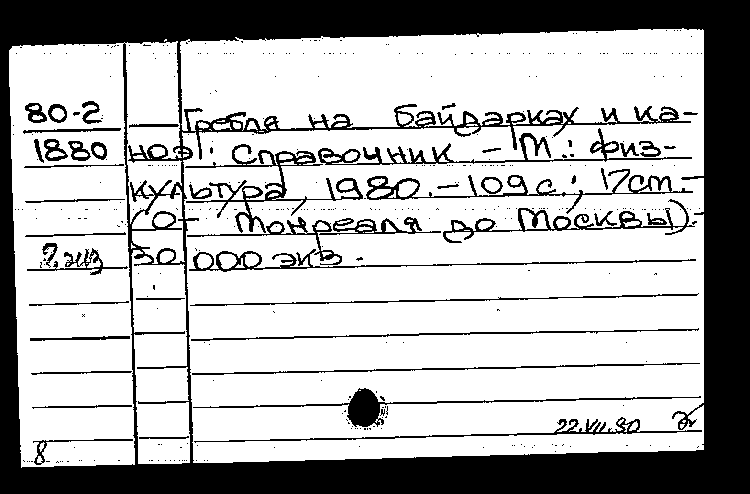 80-2 Гребля на байдарках и ка-
1880 ноэ: Справочник. – М.: физ-
культура, 1980. – 109 с.; 17 см. –
(От Монреаля до Москвы). –
2 экз 30 000 экз.
22.VII.80
8